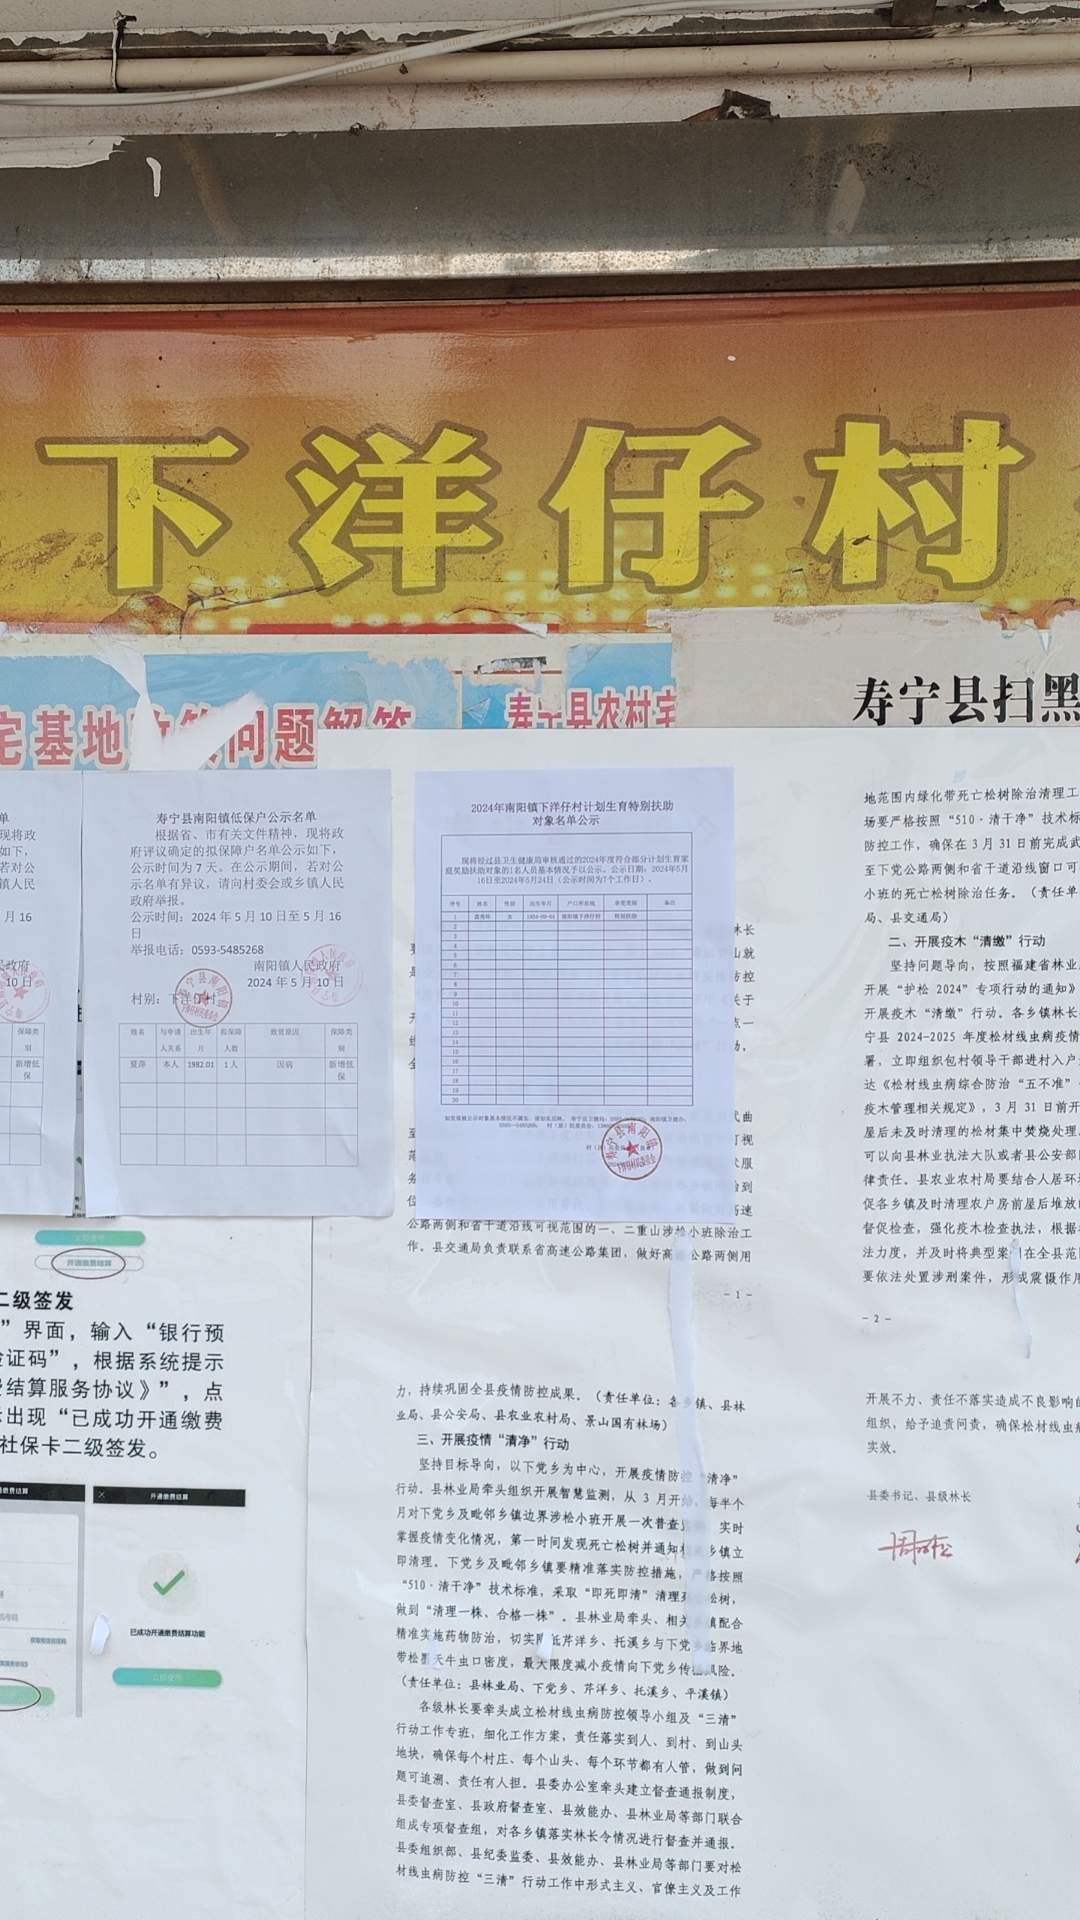 下洋仔村
宅基地
问题解答
寿宁县农村宅
寿宁县扫黑
单
现将政
如下，
若对公
人民
月 16
民政府
10 日
保障类
别
新增低
保
寿宁县南阳镇低保户公示名单
根据省、市有关文件精神，现将政
府评议确定的拟保障户名单公示如下，
公示时间为 7 天。在公示期间，若对公
示名单有异议，请向村委会或乡镇人民
政府举报。
公示时间：2024 年 5 月 10 日至 5 月 16
日
举报电话：0593-5485268
南阳镇人民政府
2024 年 5 月 10 日
村别：下洋仔村
姓名 与申请人关系 出生年月 拟保障人数 致贫原因 保障类别
夏萍 本人 1982.01 1人 因病 新增低保
2024年南阳镇下洋仔村计划生育特别扶助
对象名单公示
现将经过县卫生健康局审核通过的2024年度符合部分计划生育家
庭奖励扶助对象的1名人员基本情况予以公示。公示日期：2024年5月
16日至2024年5月24日（公示时间为7个工作日）。
序号 姓名 性别 出生年月 户口所在地 享受类别 备注
1 女 南阳镇下洋仔村 特别扶助
2
3
4
5
6
7
8
9
10
11
12
13
14
15
16
17
18
19
20
寿宁县南阳镇
下洋仔村民委员会
林长
山就
防控
《关于
点一
动，
式曲
可视
术服
给到
高速
公路两侧和省干道沿线可视范围的一、二重山涉松小班除治工
作。县交通局负责联系省高速公路集团，做好高速公路两侧用
- 1 -
地范围内绿化带死亡松树除治清理工
场要严格按照“510·清干净”技术标
防控工作，确保在 3 月 31 日前完成武
至下党公路两侧和省干道沿线窗口可
小班的死亡松树除治任务。（责任单
局、县交通局）
二、开展疫木“清缴”行动
坚持问题导向，按照福建省林业
开展“护松 2024”专项行动的通知》
开展疫木“清缴”行动。各乡镇林长
宁县 2024-2025 年度松材线虫病疫情
署，立即组织包村领导干部进村入户
达《松材线虫病综合防治“五不准”
疫木管理相关规定》，3 月 31 日前开
屋后未及时清理的松材集中焚烧处理。
可以向县林业执法大队或者县公安部
律责任。县农业农村局要结合人居环
促各乡镇及时清理农户房前屋后堆放
督促检查，强化疫木检查执法，根据
法力度，并及时将典型案例在全县范
要依法处置涉刑案件，形成震慑作用
- 2 -
立即使用
开通缴费结算
二级签发
”界面，输入“银行预
验证码”，根据系统提示
费结算服务协议》”，点
示出现“已成功开通缴费
社保卡二级签发。
通缴费结算
开通缴费结算
已成功开通缴费结算功能
立即使用
力，持续巩固全县疫情防控成果。（责任单位：各乡镇、县林
业局、县公安局、县农业农村局、景山国有林场）
三、开展疫情“清净”行动
坚持目标导向，以下党乡为中心，开展疫情防控“清净”
行动。县林业局牵头组织开展智慧监测，从 3 月开始，每半个
月对下党乡及毗邻乡镇边界涉松小班开展一次普查监测，实时
掌握疫情变化情况，第一时间发现死亡松树并通知相关乡镇立
即清理。下党乡及毗邻乡镇要精准落实防控措施，严格按照
“510·清干净”技术标准，采取“即死即清”清理死亡松树，
做到“清理一株、合格一株”。县林业局牵头、相关乡镇配合
精准实施药物防治，切实降低芹洋乡、托溪乡与下党乡临界地
带松墨天牛虫口密度，最大限度减小疫情向下党乡传播风险。
（责任单位：县林业局、下党乡、芹洋乡、托溪乡、平溪镇）
各级林长要牵头成立松材线虫病防控领导小组及“三清”
行动工作专班，细化工作方案，责任落实到人、到村、到山头
地块，确保每个村庄、每个山头、每个环节都有人管，做到问
题可追溯、责任有人担。县委办公室牵头建立督查通报制度，
县委督查室、县政府督查室、县效能办、县林业局等部门联合
组成专项督查组，对各乡镇落实林长令情况进行督查并通报。
县委组织部、县纪委监委、县效能办、县林业局等部门要对松
材线虫病防控“三清”行动工作中形式主义、官僚主义及工作
开展不力、责任不落实造成不良影响的
组织，给予追责问责，确保松材线虫病
实效。
县委书记、县级林长